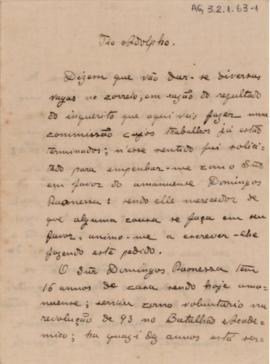 AG 3.2.1.63-1
Tio Adolpho.
Dizem que vão dar-se diversas
vagas no correio, em razão do resultado
do inquerito que aqui veio fazer uma
commissão cujos trabalhos já estão
terminados; n'esse sentido fui solici-
tado para empenhar-me com o Snr
em favor do amanuense Domingos
sendo elle merecedor de
que alguma cousa se faça em seu
favor, animo-me a escrever-lhe
fazendo este pedido.
O Snr Domingos tem
16 annos de casa sendo hoje ama-
nuense; serviu como voluntario na
revolução de 93 no Batalhão Acade-
mico; ha quasi dez annos está